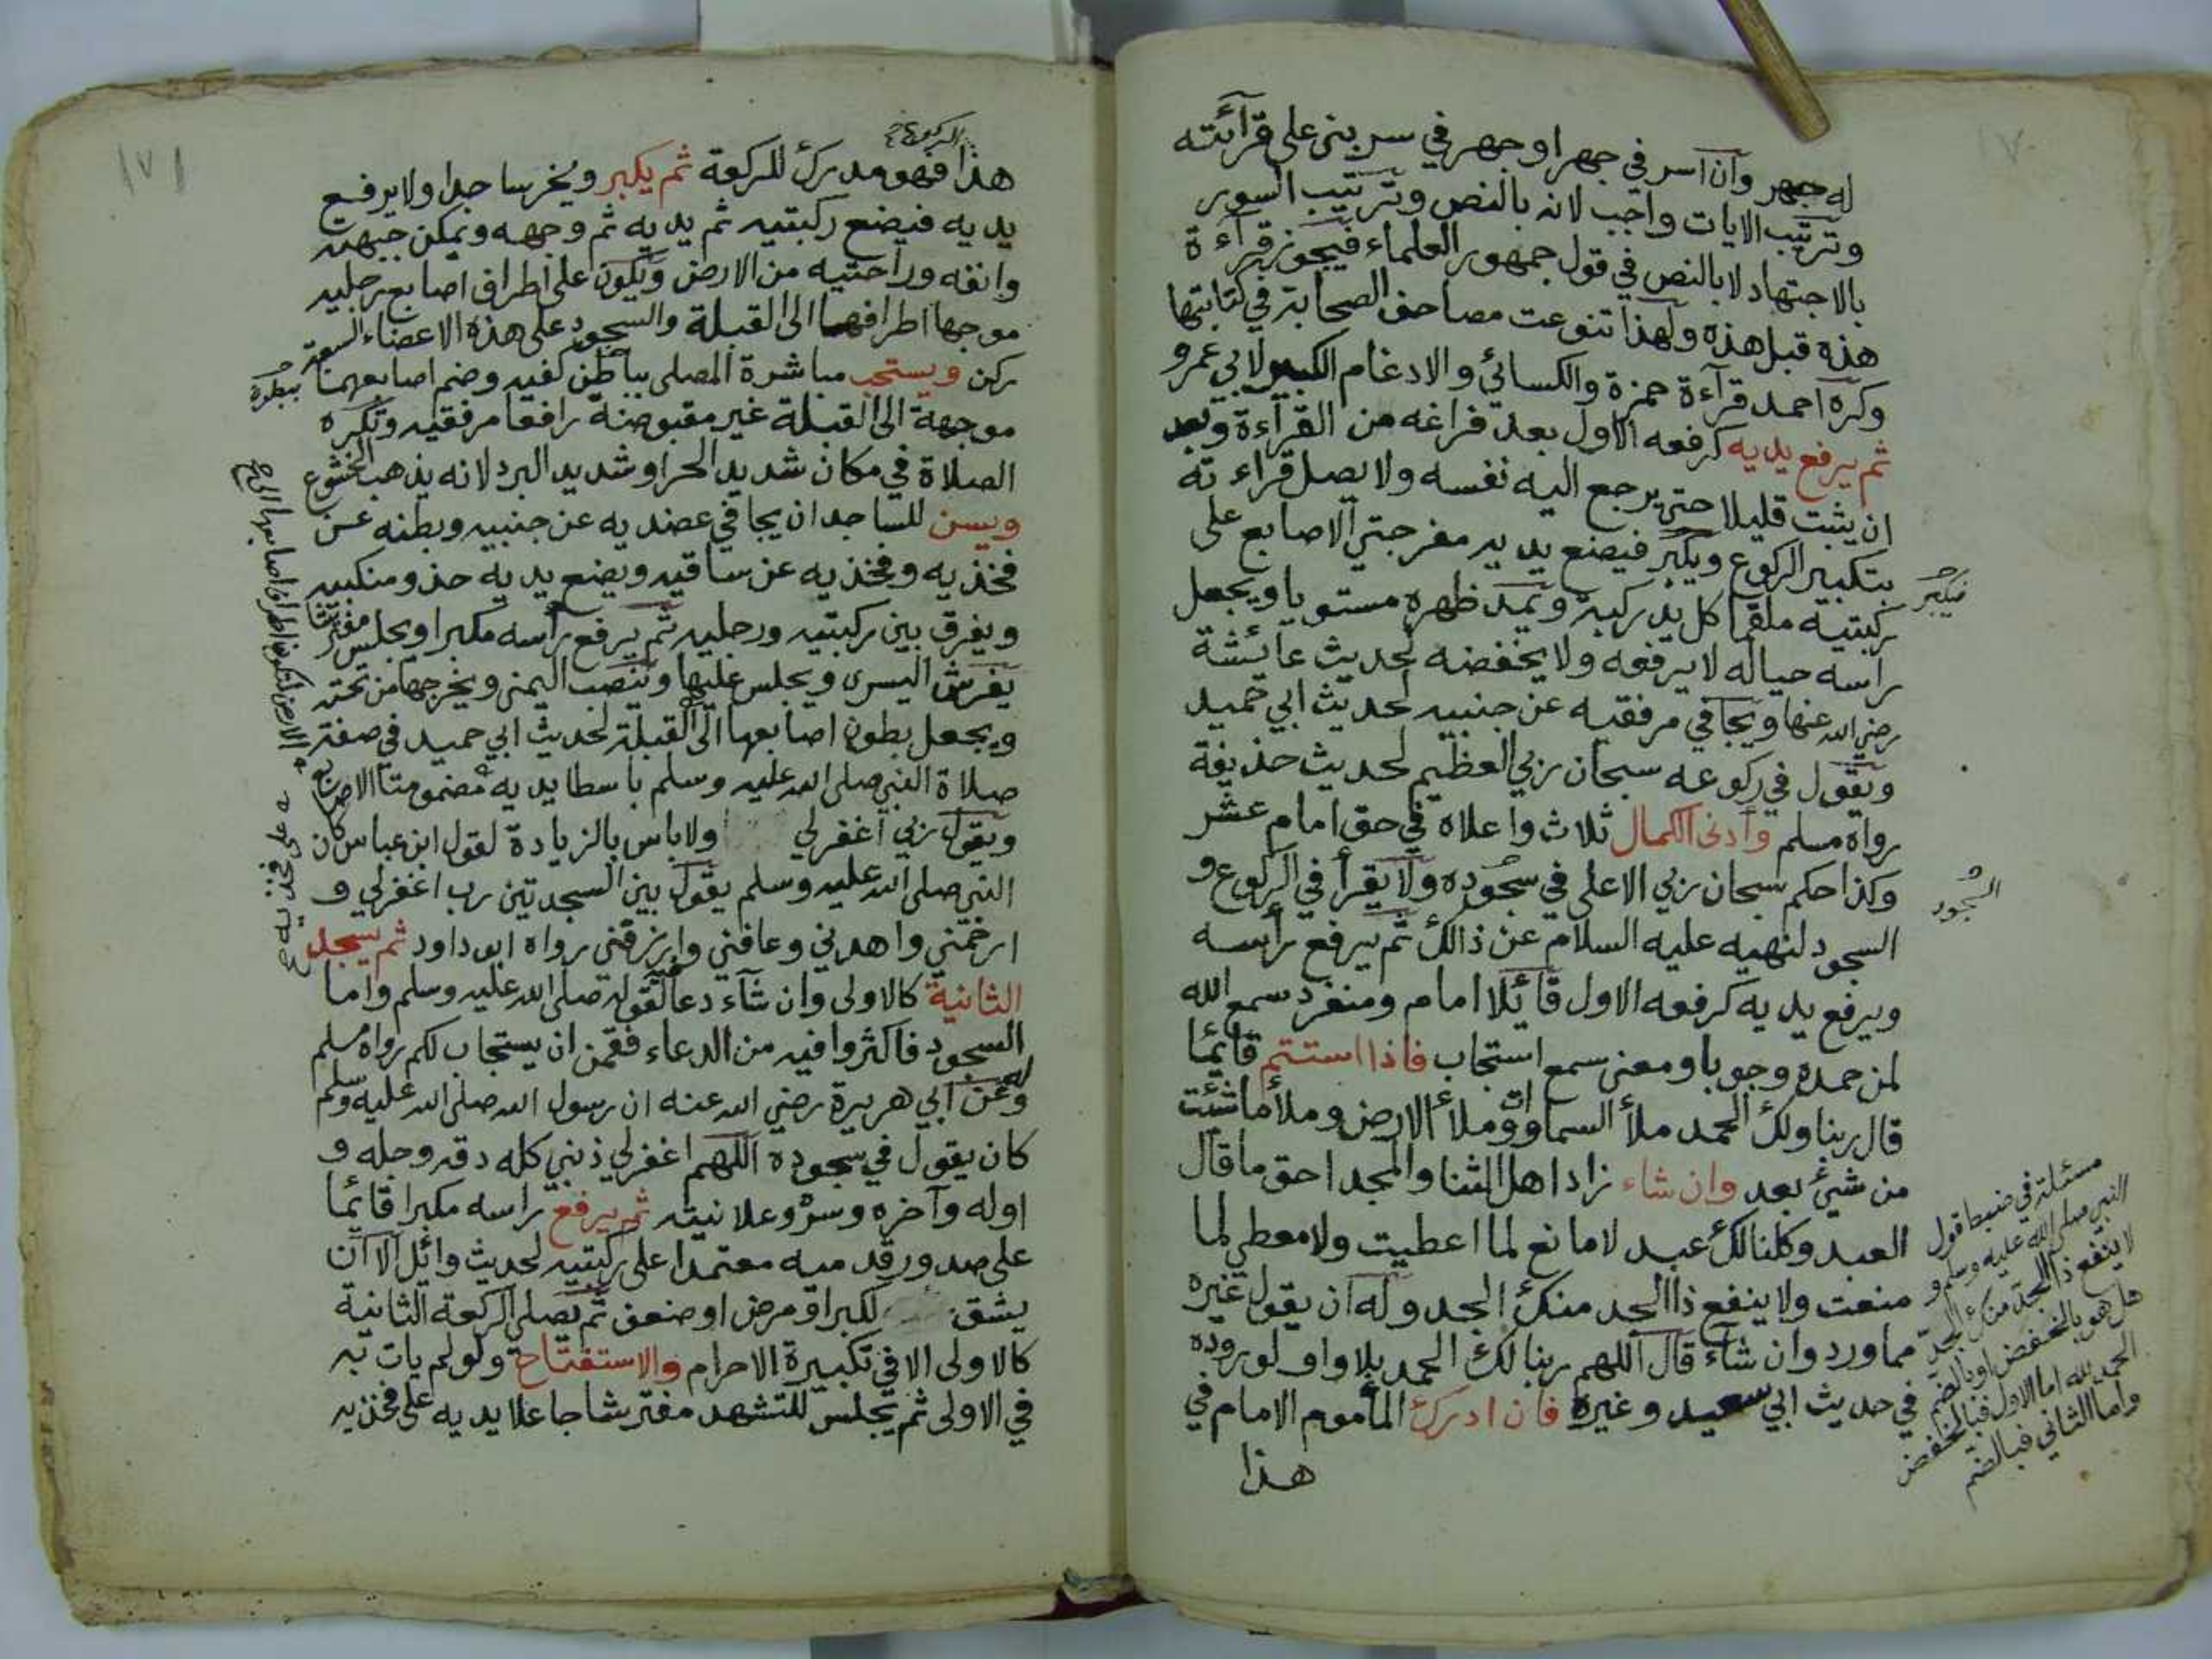 ١٧٠
له جهر وان اسر في جهر او جهر في سر بنى على قرآئته
وترتيب الايات واجب لانه بالنص وترتيب السور
بالاجتهاد لا بالنص في قول جمهور العلماء فيجوز قرآءة
هذه قبل هذه ولهذا تنوعت مصاحف الصحابة في كتابتها
وكره احمد قرآءة حمزة والكسائي والادغام الكبير لابي عمرو
ثم يرفع يديه كرفعه الاول بعد فراغه من القرآءة وبعد
ان يثبت قليلا حتى يرجع اليه نفسه ولا يصل قراءته
بتكبير الركوع ويكبر فيضع يديه مفرجتي الاصابع على
فيكبر
ركبتيه ملقما كل يد ركبة ويمد ظهره مستويا ويجعل
راسه حياله لا يرفعه ولا يخفضه لحديث عائشة
رضي الله عنها ويجافي مرفقيه عن جنبيه لحديث ابي حميد
ويقول في ركوعه سبحان ربي العظيم لحديث حذيفة
رواه مسلم وأدنى الكمال ثلاث واعلاه في حق امام عشر
وكذا حكم سبحان ربي الاعلى في سجوده ولا يقرأ في الركوع و
السجود
السجود لنهيه عليه السلام عن ذالك ثم يرفع رأسه
ويرفع يديه كرفعه الاول قائلا امام ومنفرد سمع الله
لمن حمده وجوبا ومعنى سمع استجاب فاذا استتم قائما
قال ربنا ولك الحمد ملأ السماوات وملأ الارض وملأ ما شئت
من شيئ بعد وان شاء زاد اهل الثنا والمجد احق ما قال
العبد وكلنا لك عبد لا مانع لما اعطيت ولا معطي لما
منعت ولا ينفع ذا الجد منك الجد وله ان يقول غيره
مما ورد وان شآء قال اللهم ربنا لك الحمد بلا واو لوروده
في حديث ابي سعيد وغيره فان ادرك المأموم الامام في
هذا
مسئلة في ضبط قول
النبي صلى الله عليه وسلم و
لا ينفع ذا الجد منك الجد
هل هو بالخفض او بالضم
الحمد لله اما الاول فبالخفض
واما الثاني فبالضم
١٧١
الركوع
هذا فهو مدرك للركعة ثم يكبر ويخر ساجدا ولا يرفع
يديه فيضع ركبتيه ثم يديه ثم وجهه ويمكن جبهته
وانفه وراحتيه من الارض ويكون على اطراف اصابع رجليه
موجها اطرافهما الى القبلة والسجود على هذه الاعضاء السبعة
ركن ويستحب مباشرة المصلى بباطن كفيه وضم اصابعهما
موجهة الى القبلة غير مقبوضة رافعا مرفقيه وتكره
الصلاة في مكان شديد الحر او شديد البرد لانه يذهب الخشوع
ويسن للساجد ان يجافي عضديه عن جنبيه وبطنه عن
فخذيه وفخذيه عن ساقيه ويضع يديه حذو منكبيه
ويفرق بين ركبتيه ورجليه ثم يرفع رأسه مكبرا ويجلس مفترشا
يفرش اليسرى ويجلس عليها وينصب اليمنى ويخرجها من تحته
ويجعل بطون اصابعها الى القبلة لحديث ابي حميد في صفة
صلاة النبي صلى الله عليه وسلم باسطا يديه مضمومتا الاصابع
ويقول ربي اغفر لي ولا باس بالزيادة لقول ابن عباس كان
النبي صلى الله عليه وسلم يقول بين السجدتين رب اغفر لي و
ارحمني واهدني وعافني وارزقني رواه ابو داود ثم يسجد
الثانية كالاولى وان شآء دعا لقوله صلى الله عليه وسلم واما
السجود فاكثروا فيه من الدعاء فقمن ان يستجاب لكم رواه مسلم
وعن ابي هريرة رضي الله عنه ان رسول الله صلى الله عليه وسلم
كان يقول في سجوده اللهم اغفر لي ذنبي كله دقه وجله و
اوله وآخره وسره وعلانيته ثم يرفع راسه مكبرا قائما
على صدور قدميه معتمدا على ركبتيه لحديث وائل الا ان
يشق لكبر او مرض او ضعف ثم يصلى الركعة الثانية
كالاولى الا في تكبيرة الاحرام والاستفتاح ولو لم يات به
في الاولى ثم يجلس للتشهد مفترشا جاعلا يديه على فخذيه